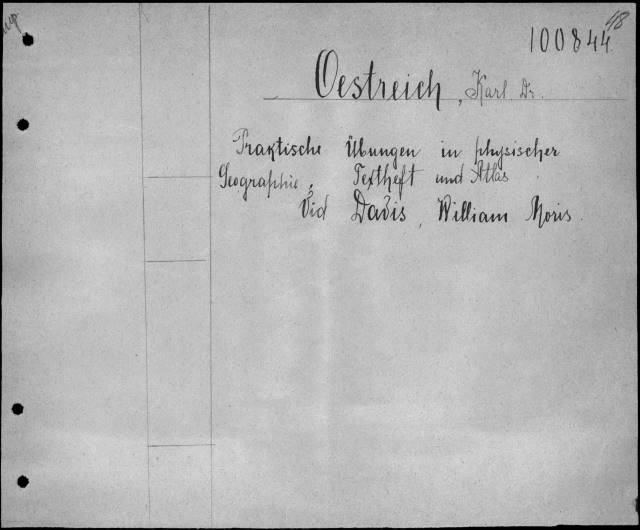 48
100844
Oestreich, Karl Dr.
Praktische Übungen in physischer
Geographie, Textheft und Atlas
Vid Davis, William Moris.